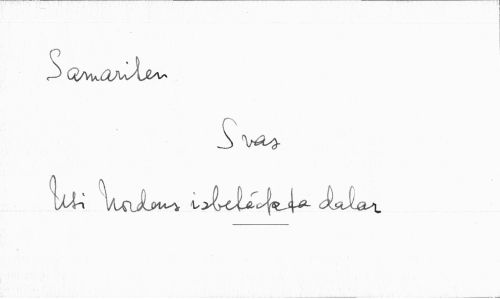 Samariten
Svas
Uti Nordens isbetäckta dalar